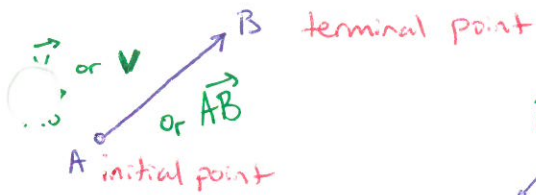 B terminal point
or V
or \overrightarrow{AB}
A initial point